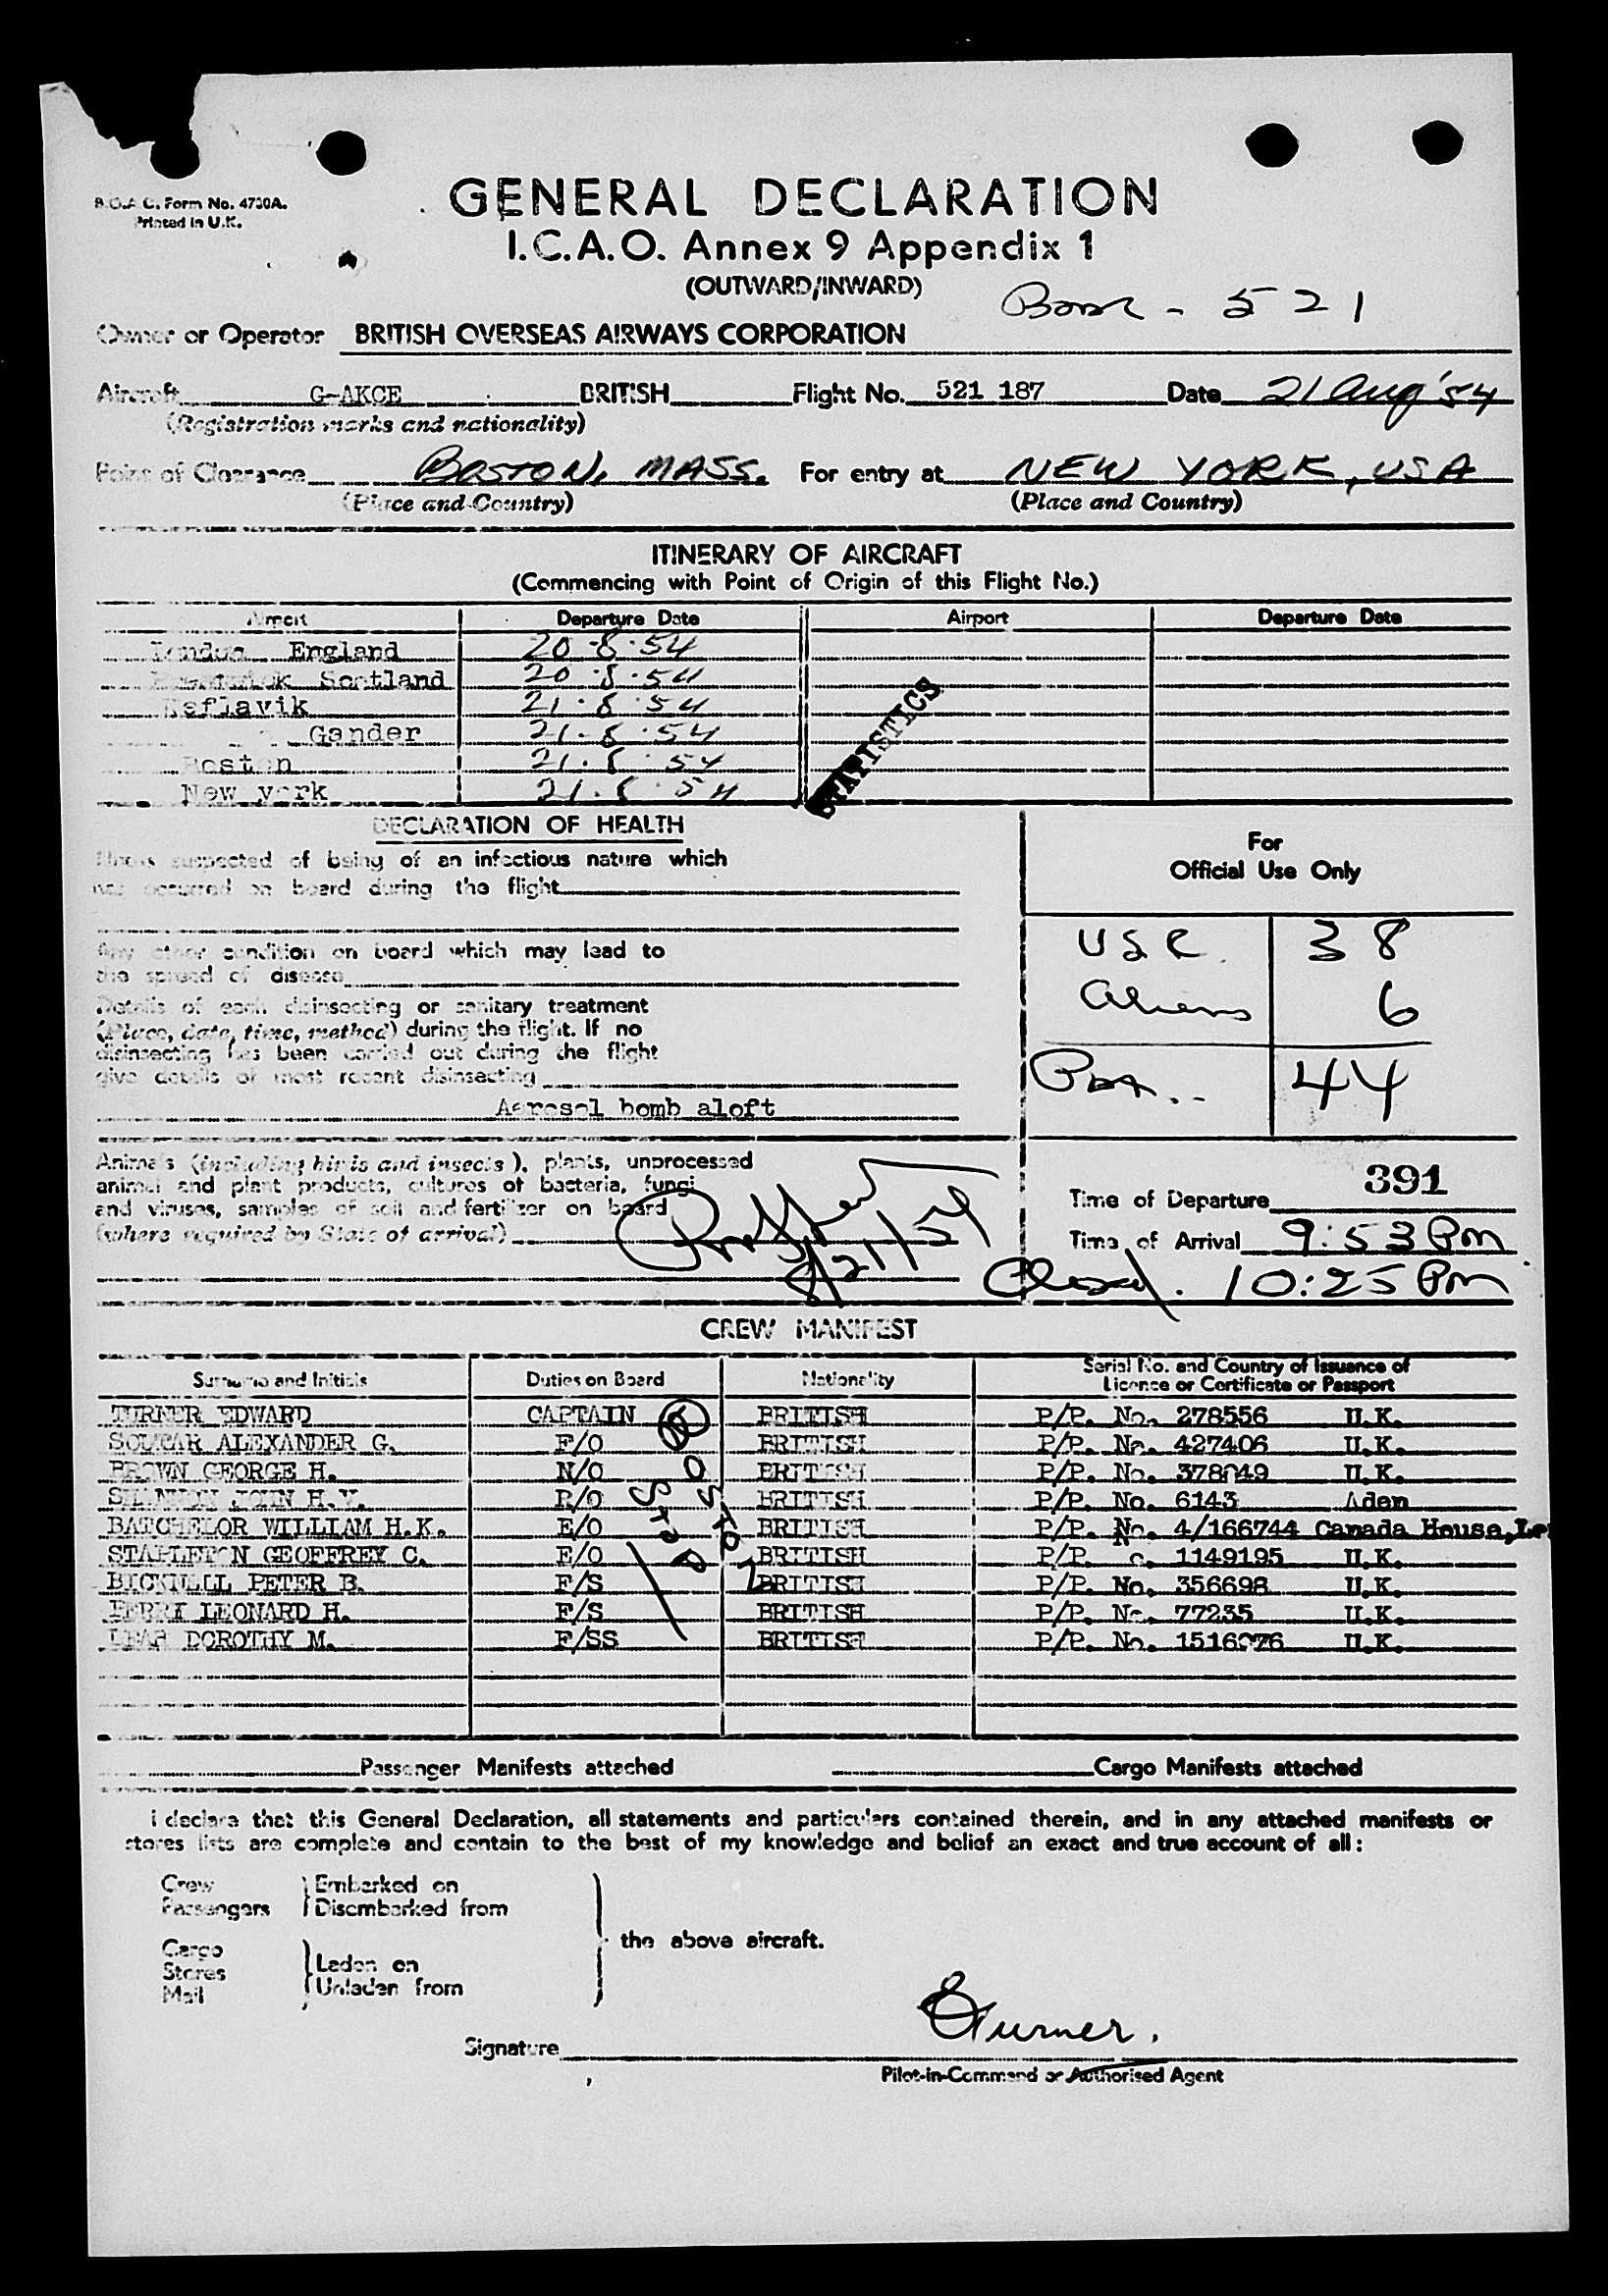 B.O.A.C. Form No. 4730A.
Printed in U.K.
GENERAL DECLARATION
I.C.A.O. Annex 9 Appendix 1
(OUTWARD/INWARD)
- 521
Owner or Operator BRITISH OVERSEAS AIRWAYS CORPORATION
Aircraft G-AKCE BRITISH Flight No. 521 187 Date 21 Aug '54
(Registration marks and nationality)
Point of Clearance BOSTON, MASS. For entry at NEW YORK, USA
(Place and Country) (Place and Country)
ITINERARY OF AIRCRAFT
(Commencing with Point of Origin of this Flight No.)
Airport Departure Date Airport Departure Date
London England 20.8.54
Scotland 20.8.54
Keflavik 21.8.54
Gander 21.8.54
Boston 21.8.54
New york 21.8.54
STATISTICS
DECLARATION OF HEALTH
Illness suspected of being of an infectious nature which
has occurred on board during the flight
For
Official Use Only
Any other condition on board which may lead to
the spread of disease
USC 38
Aliens 6
44
Details of each disinsecting or sanitary treatment
(Place, date, time, method) during the flight. If no
disinsecting has been carried out during the flight
give details of most recent disinsecting
Aerosol bomb aloft
Animals (including birds and insects), plants, unprocessed
animal and plant products, cultures of bacteria, fungi
and viruses, samples of soil and fertilizer on board
(where required by State of arrival)
8/21/54
391
Time of Departure
Time of Arrival 9:53 Pm
Closed. 10:25 Pm
CREW MANIFEST
Surname and Initials Duties on Board Nationality Serial No. and Country of Issuance of
Licence or Certificate or Passport
TURNER EDWARD CAPTAIN BRITISH P/P. No. 278556 U.K.
SOUTAR ALEXANDER G. F/O BRITISH P/P. No. 427406 U.K.
BROWN GEORGE H. N/O BRITISH P/P. No. 378049 U.K.
JOHN H.V. R/O BRITISH P/P. No. 6143 Aden
BATCHELOR WILLIAM H.K. E/O BRITISH P/P. No. 4/166744 Canada House,Lo
STAPLETON GEOFFREY C. E/O BRITISH P/P. No. 1149195 U.K.
BICKNELL PETER B. F/S BRITISH P/P. No. 356698 U.K.
PERRY LEONARD H. F/S BRITISH P/P. No. 77235 U.K.
LEAH DOROTHY M. F/SS BRITISH P/P. No. 1516076 U.K.
Passenger Manifests attached Cargo Manifests attached
I declare that this General Declaration, all statements and particulars contained therein, and in any attached manifests or
stores lists are complete and contain to the best of my knowledge and belief an exact and true account of all:
Crew Embarked on
Passengers Disembarked from
the above aircraft.
Cargo
Stores Laden on
Mail Unladen from
Signature E Turner.
Pilot-in-Command or Authorised Agent